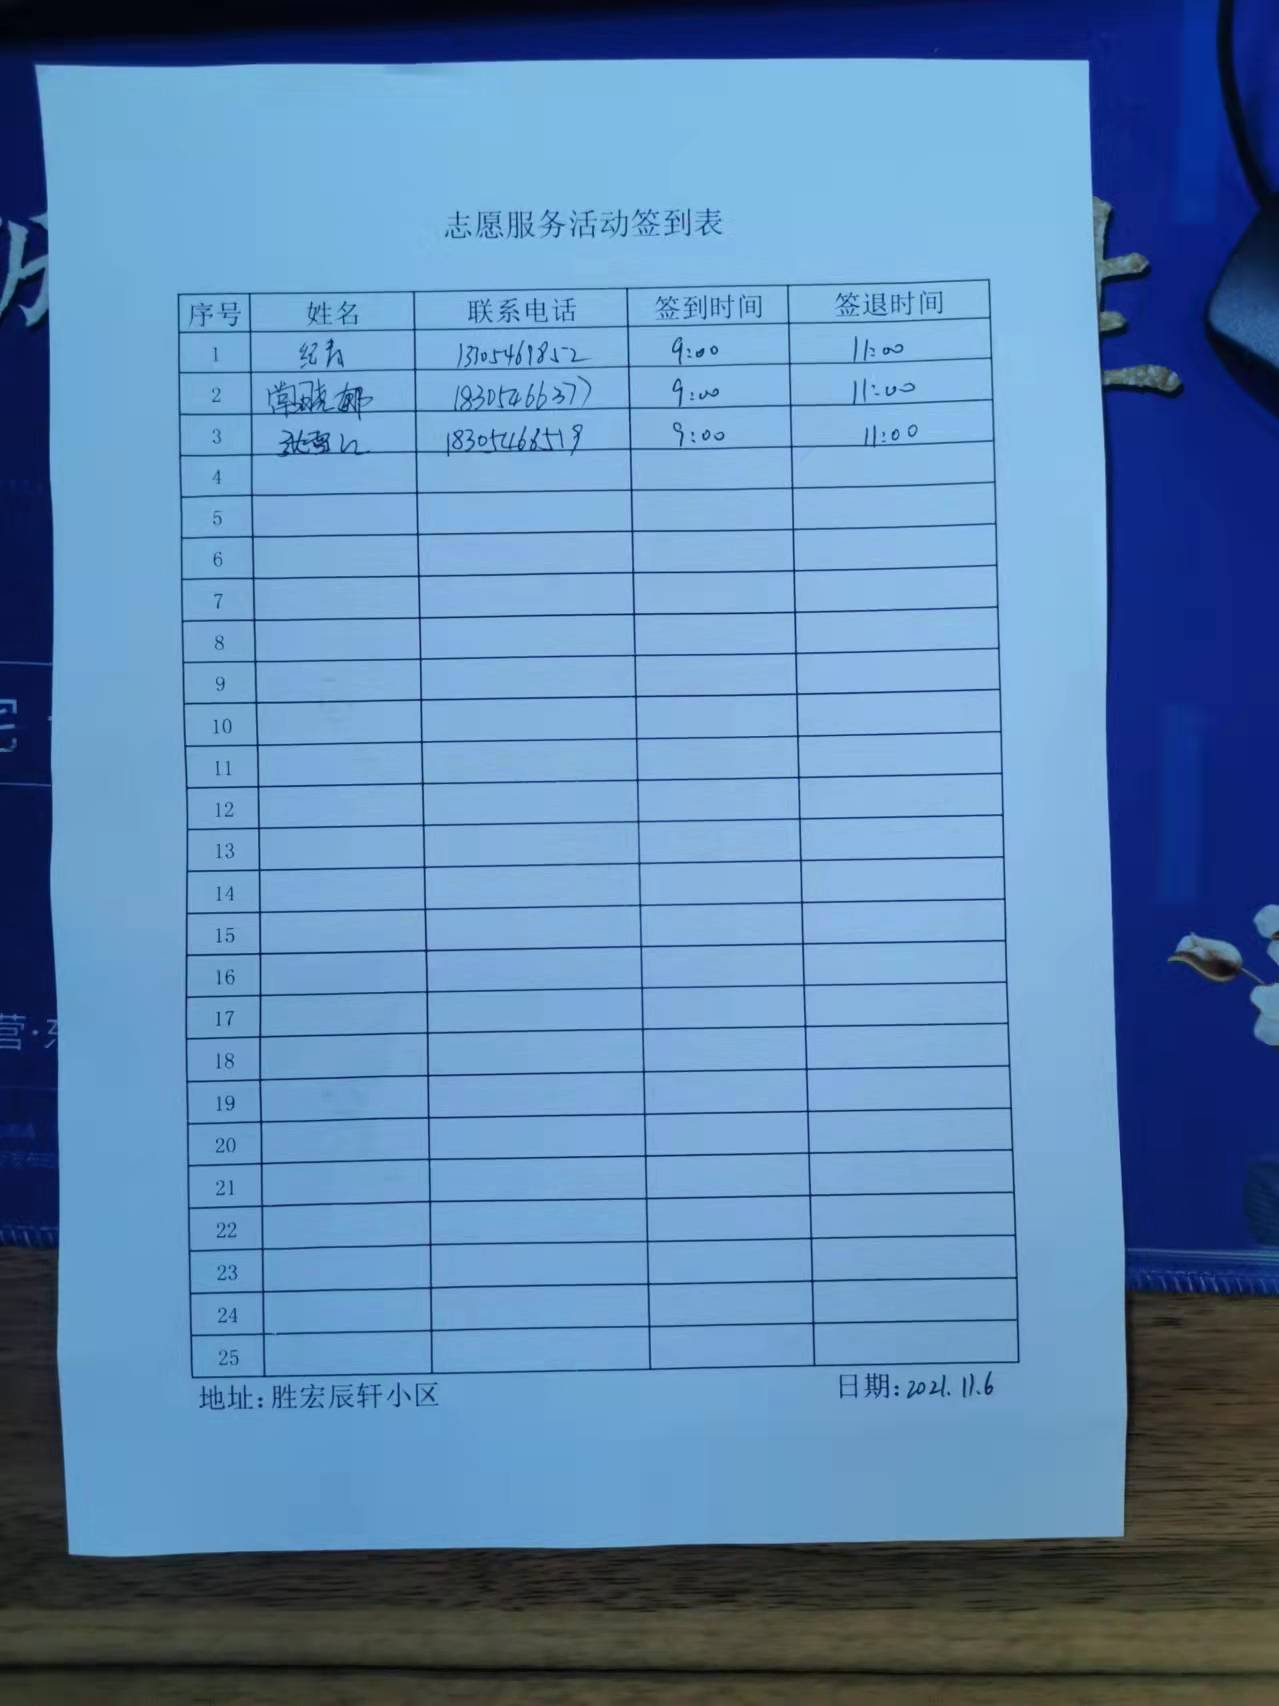 志愿服务活动签到表
序号 姓名 联系电话 签到时间 签退时间
1 纪青 13105469852 9:00 11:00
2 常晓娜 18305466377 9:00 11:00
3 18305468519 9:00 11:00
4
5
6
7
8
9
10
11
12
13
14
15
16
17
18
19
20
21
22
23
24
25
地址:胜宏辰轩小区 日期:2021.11.6
营·东